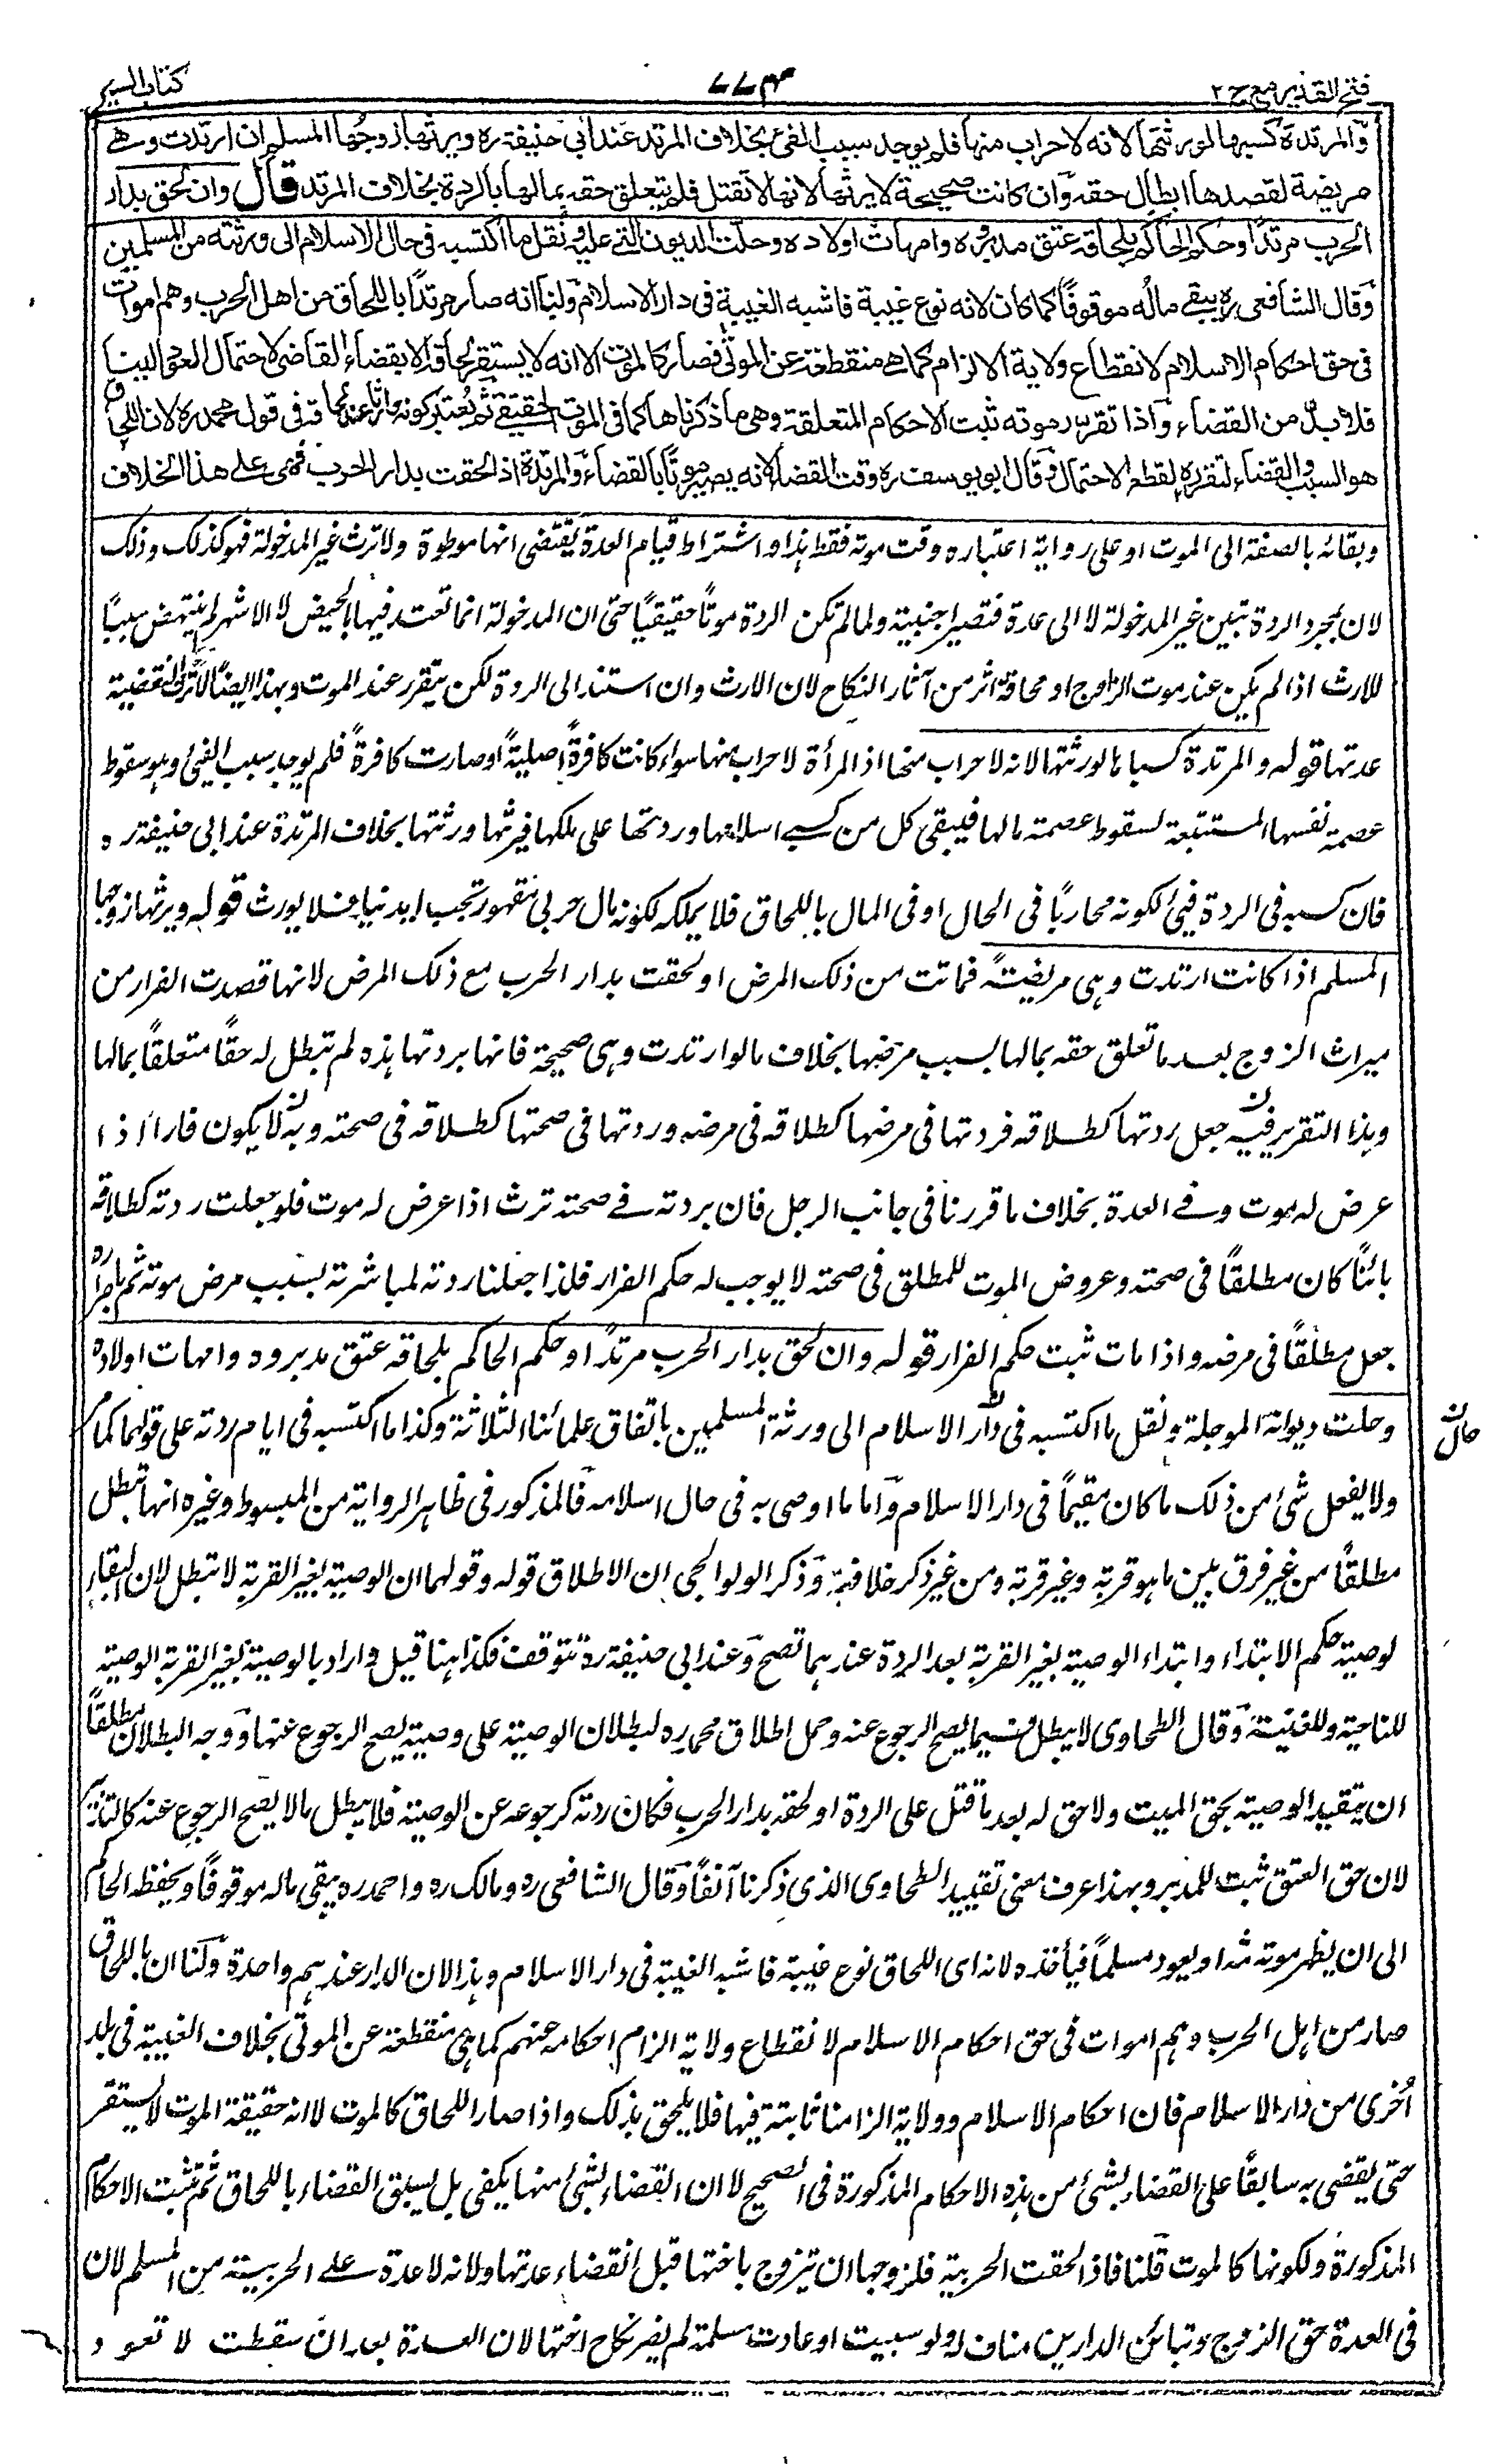 فتح القدير مع ج ٢
٧٧٤
كتاب السير
والمرتدة كسبها لورثتها لانه لا حراب منها فلم يوجد سبب الفئ بخلاف المرتد عند ابي حنيفة ره ويرثها زوجها المسلم ان ارتدت وهي
مريضة لقصدها ابطال حقه وان كانت صحيحة لا يرثها لانها لا تقتل فلم يتعلق حقه بمالها بالردة بخلاف المرتد قال وان لحق بدار
الحرب مرتدًا وحكم الحاكم بلحاقه عتق مدبروه وامهات اولاده وحلت الديون التي عليه ونقل ما اكتسبه في حال الاسلام الى ورثته من المسلمين
وقال الشافعي ره يبقى ماله موقوفًا كما كان لانه نوع غيبة فاشبه الغيبة في دار الاسلام ولنا انه صار مرتدًا باللحاق من اهل الحرب وهم اموات
في حق احكام الاسلام لانقطاع ولاية الالزام كما هي منقطعة عن الموتى فصار كالموت الا انه لا يستقر لحاقه الا بقضاء القاضي لاحتمال العود الينا
فلا بد من القضاء واذا تقرر موته ثبت الاحكام المتعلقة وهي ما ذكرناها كما في الموت الحقيقي ثم يعتبر كونه وارثًا عند لحاقه في قول محمد ره لان اللحاق
هو السبب والقضاء لتقرره لقطع الاحتمال وقال ابو يوسف ره وقت القضاء لانه يصير موتًا بالقضاء والمرتدة اذا لحقت بدار الحرب فهي على هذا الخلاف
وبقائه بالصفة الى الموت او على رواية اعتباره وقت موته فقط هذا واشتراط قيام العدة يقتضي انها موطوة ولا ترث غير المدخولة فهو كذلك وذلك
لان بمجرد الردة تبين غير المدخولة لا الى عدة فتصير اجنبية ولما لم تكن الردة موتًا حقيقيًا حتى ان المدخولة انما تعتد فيها بالحيض لا الاشهر لم ينتهض سببًا
للارث اذا لم يكن عند موت الزوج او لحاقه اثر من آثار النكاح لان الارث وان استند الى الردة لكن يتقرر عند الموت وبهذا ايضًا لا ترث المنقضية
عدتها قوله والمرتدة كسبها لورثتها لانه لا حراب منها اذ المرأة لا حراب منها سواء كانت كافرةً اصليةً او صارت كافرةً فلم يوجد سبب الفئ وهو سقوط
عصمة نفسها المستتبعة لسقوط عصمة مالها فيبقى كل من كسبي اسلامها وردتها على ملكها فيرثها ورثتها بخلاف المرتدة عند ابي حنيفة ره
فان كسبه في الردة فيئ لكونه محاربًا في الحال او في المال باللحاق فلا يملكه لكونه مال حربي مقهور تحت ايدينا فلا يورث قوله ويرثها زوجها
المسلم اذا كانت ارتدت وهي مريضةً فماتت من ذلك المرض او لحقت بدار الحرب مع ذلك المرض لانها قصدت الفرار من
ميراث الزوج بعد ما تعلق حقه بمالها بسبب مرضها بخلاف ما لو ارتدت وهي صحيحة فانها بردتها هذه لم تبطل له حقًا متعلقًا بمالها
وهذا التقرير فيه جعل ردتها كطلاقه فردتها في مرضها كطلاقه في مرضه وردتها في صحتها كطلاقه في صحته وبه لا يكون فارا اذا
عرض له موت وفي العدة بخلاف ما قررنا في جانب الرجل فان بردته في صحته ترث اذا عرض له موت فلو جعلت ردته كطلاقه
بائنًا كان مطلقًا في صحته وعروض الموت للمطلق في صحته لا يوجب له حكم الفرار فلذا جعلنا ردته لمباشرته بسبب مرض موته ثم باصراره
جعل مطلقًا في مرضه واذا مات ثبت حكم الفرار قوله وان لحق بدار الحرب مرتدًا وحكم الحاكم بلحاقه عتق مدبروه وامهات اولاده
وحلت ديونه الموجلة ونقل ما اكتسبه في دار الاسلام الى ورثته المسلمين باتفاق علمائنا الثلاثة وكذا ما اكتسبه في ايام ردته على قولهما كما م
حال ن
ولا يفعل شئ من ذلك ما كان مقيمًا في دار الاسلام واما ما اوصى به في حال اسلامه فالمذكور في ظاهر الرواية من المبسوط وغيره انها تبطل
مطلقًا من غير فرق بين ما هو قربة وغير قربة ومن غير ذكر خلاف فيه وذكر الولوالجي ان الاطلاق قوله وقولهما ان الوصية بغير القربة لا تبطل لان لبقاء
لوصية حكم الابتداء وابتداء الوصية بغير القربة بعد الردة عندهما تصح وعند ابي حنيفة ره تتوقف فكذا هنا قيل واراد بالوصية بغير القربة الوصية
للنائحة وللمغنية وقال الطحاوي لا يبطل فيما لا يصح الرجوع عنه وحمل اطلاق محمد ره لبطلان الوصية على وصية يصح الرجوع عنها ووجه البطلان مطلقًا
ان تنفيذ الوصية بحق الميت ولا حق له بعد ما قتل على الردة او لحقه بدار الحرب فكان ردته كرجوعه عن الوصية فلا يبطل ما لا يصح الرجوع عنه كالتدبير
لان حق العتق ثبت للمدبر وبهذا عرف معنى تقييد الطحاوي الذي ذكرنا آنفًا وقال الشافعي ره ومالك ره واحمد ره يبقى ماله موقوفًا ويحفظه الحاكم
الى ان يظهر موته ثمه او يعود مسلمًا فيأخذه لانه اي اللحاق نوع غيبة فاشبه الغيبة في دار الاسلام وهذا لان الدار عندهم واحدة ولنا ان باللحاق
صار من اهل الحرب وهم اموات في حق احكام الاسلام لانقطاع ولاية الزام احكامه عنهم كما هي منقطعة عن الموتى بخلاف الغيبة في بلد
أخرى من دار الاسلام فان احكام الاسلام وولاية الزامنا ثابتة فيها فلا يلحق بذلك واذا صار اللحاق كالموت لا انه حقيقة الموت لا يستقر
حتى يقضى به سابقًا على القضاء بشئ من هذه الاحكام المذكورة في الصحيح لا ان القضاء بشئ منها يكفي بل يسبق القضاء باللحاق ثم تثبت الاحكام
المذكورة ولكونها كالموت قلنا فاذا لحقت الحربية فلزوجها ان يتزوج باختها قبل انقضاء عدتها ولانه لا عدة على الحربية من المسلم لان
في العدة حق الزوج وتباين الدارين مناف له ولو سبيت او عادت مسلمة لم يضر نكاح اختها لان العدة بعد ان سقطت لا تعود